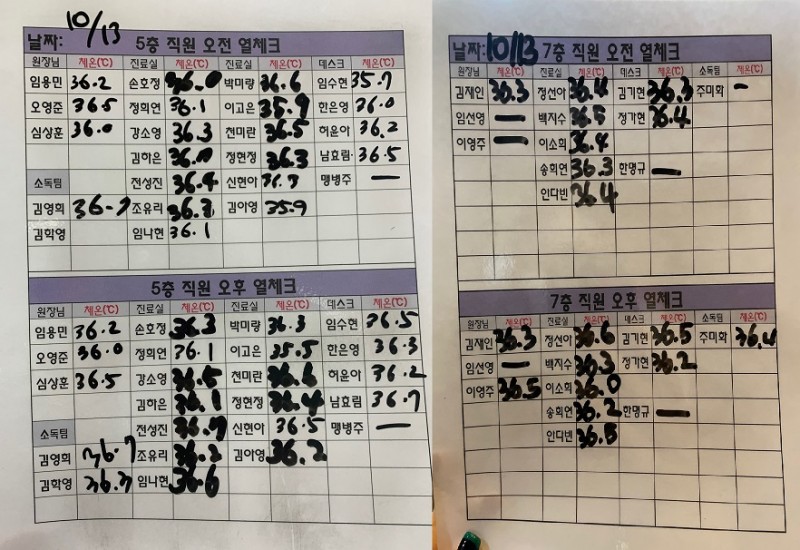 날짜: 10/13 5층 직원 오전 열체크
원장님 체온(℃) 진료실 체온(℃) 진료실 체온(℃) 데스크 체온(℃)
임용민 36.2 손호정 박미량 36.6 임수현 35.7
오영준 36.5 정희연 36.1 이고은 35.9 한은영 36.0
심상훈 36.0 강소영 36.3 천미란 36.5 허윤아 36.2
김하은 정현정 36.3 남효림 36.5
소독팀 전성진 36.4 신현아 36.3 맹병주 —
김영희 조유리 36.3 김아영 35.9
김학영 임나현 36.1
5층 직원 오후 열체크
원장님 체온(℃) 진료실 체온(℃) 진료실 체온(℃) 데스크 체온(℃)
임용민 36.2 손호정 36.3 박미량 36.3 임수현 36.5
오영준 36.0 정희연 36.1 이고은 35.5 한은영 36.3
심상훈 36.5 강소영 36.5 천미란 36.6 허윤아 36.2
김하은 36.1 정현정 36.4 남효림 36.7
소독팀 전성진 신현아 36.5 맹병주 —
김영희 36.7 조유리 36.2 김아영 36.2
김학영 36.3 임나현 36.6
날짜: 10/13 7층 직원 오전 열체크
원장님 체온(℃) 진료실 체온(℃) 데스크 체온(℃) 소독팀 체온(℃)
김재인 36.3 정선아 36.4 김기현 36.3 주미화 —
임선영 — 백지수 36.5 정가현 36.4
이영주 — 이소희 36.4
송희연 36.3 한명규 —
인다빈 36.4
7층 직원 오후 열체크
원장님 체온(℃) 진료실 체온(℃) 데스크 체온(℃) 소독팀 체온(℃)
김재인 36.3 정선아 36.6 김기현 36.5 주미화 36.4
임선영 — 백지수 36.3 정가현 36.2
이영주 36.5 이소희 36.0
송희연 36.2 한명규 —
인다빈 36.5